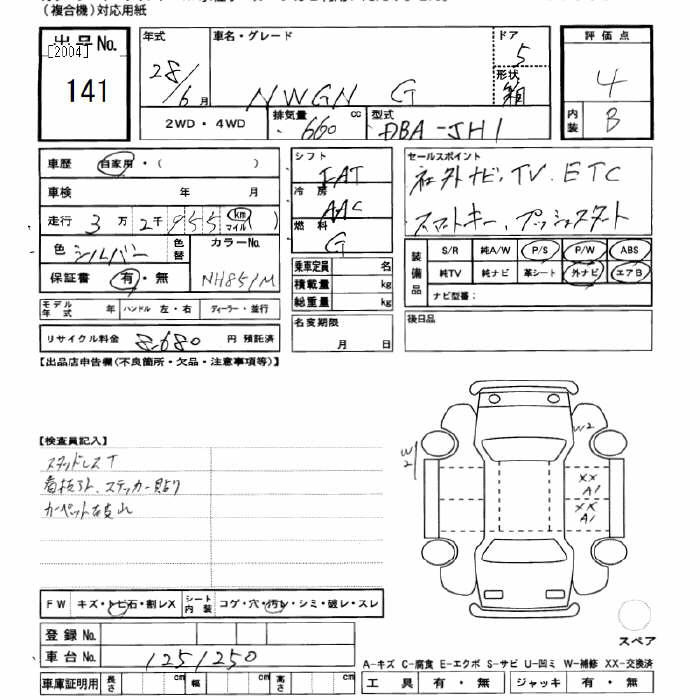 （複合機）対応用紙
出品No.
[2004]
141
年式 28/6 月
車名・グレード NWGN G
ドア 5
形状 箱
2WD・4WD
排気量 660 cc
型式 DBA-JH1
評価点 4
内装 B
車歴 自家用・( )
車検 年 月
走行 3万2千955 (km マイル)
色 シルバー 色替 カラーNo. NH851M
保証書 有・無
シフト FAT
冷房 AAC
燃料 G
乗車定員 名
積載量 kg
総重量 kg
セールスポイント
社外ナビ、TV、ETC
スマートキー、プッシュスタート
装備品
S/R 純A/W P/S P/W ABS
純TV 純ナビ 革シート 外ナビ エアB
ナビ型番：
モデル年式 年 ハンドル 左・右 ディーラー・並行
名変期限 月 日
後日品
リサイクル料金 8,680 円 預託済
【出品店申告欄(不良箇所・欠品・注意事項等)】
【検査員記入】
スタッドレスT
カーペット
W2
W2
XX
A1
XX
A1
FW キズ・トビ石・割レX シート内装 コゲ・穴・汚レ・シミ・破レ・スレ
登録No.
車台No. 1251250
車庫証明用 長さ cm 幅 cm 高さ cm
スペア
A-キズ C-腐食 E-エクボ S-サビ U-凹ミ W-補修 XX-交換済
工具 有・無 ジャッキ 有・無